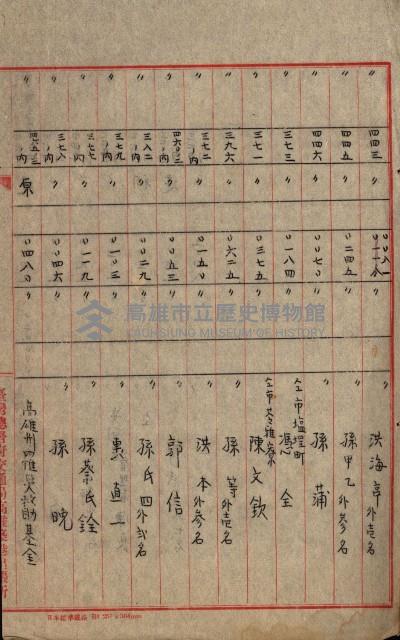 〃 四四三 〃 〃 洪海亭外壱名
〃 四四五 〃 〃二四五 〃 〃 孫甲乙外参名
〃 四四六 〃 〃〃七〃 〃 〃 孫蒲
〃 三七三 〃 〃一八四 〃 仝市塩埕町 馮全
〃 三七一 〃 〃三七五 〃 仝市苓雅寮 陳文欽
〃 三九六 〃 〃六二五 〃 〃 孫等外壱名
〃 三七二ノ内 〃 〃一五〃 〃 〃 洪本外参名
〃 〃 〃〃五三 〃 〃 郭信
〃 三八二 〃 〃〃二九 〃 〃 孫氏四外弐名
〃 三七九ノ内 〃 〃一〃三 〃 〃 直一
〃 三七七ノ内 〃 〃一一九 〃 〃 孫蔡氏銓
〃 三七八ノ内 〃 〃〃四六 〃 〃 孫晩
〃 ノ内 原 〃四八〃 〃 高雄州罹災救助基金
高雄市立歷史博物館
KAOHSIUNG MUSEUM OF HISTORY